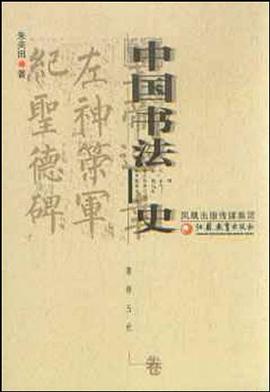 中国书法史
朱关田 著
左神策軍
紀聖德碑
隋唐五代
卷
凤凰出版传媒集团
江苏教育出版社